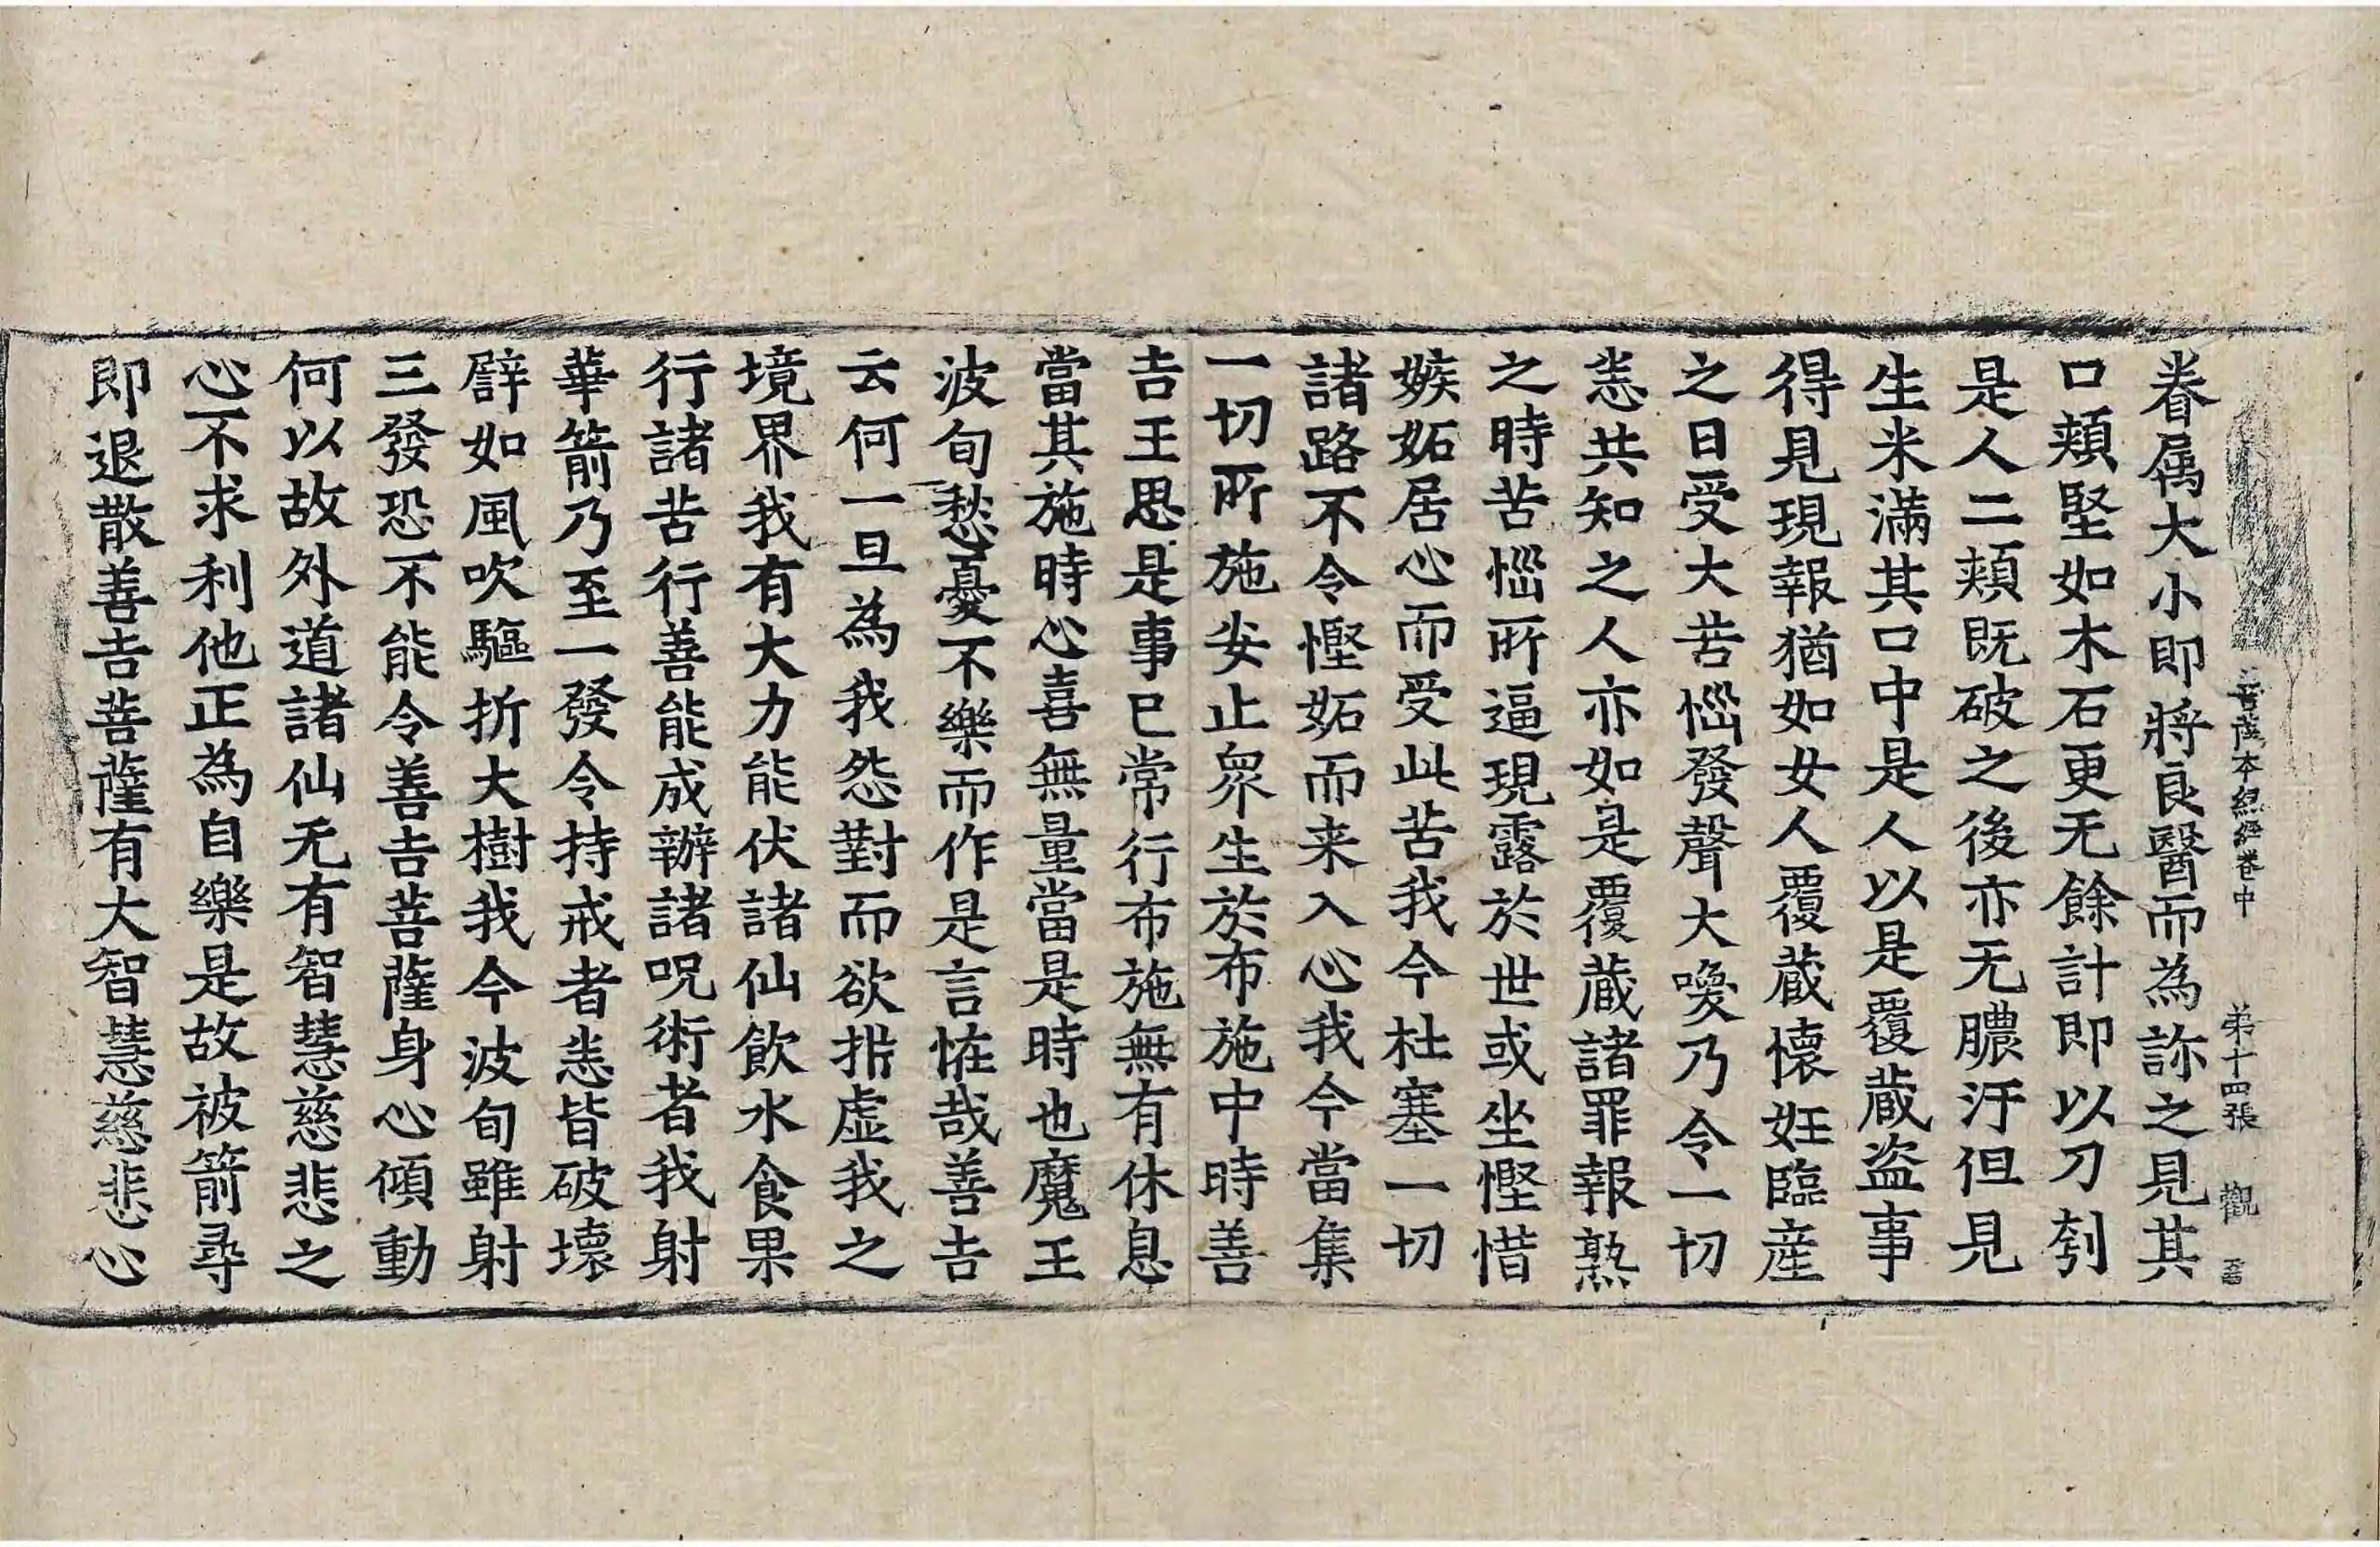 菩薩本緣經卷中　弟十四張　觀
眷属大小即將良醫而為診之見其
口頰堅如木石更无餘計即以刀刳
是人二頰既破之後亦无膿汙但見
生米滿其口中是人以是覆蔵盗事
得見現報猶如女人覆蔵懷妊臨産
之日受大苦惱發聲大喚乃令一切
悉共知之人亦如是覆蔵諸罪報熟
之時苦惱所逼現露於世或坐慳惜
嫉妬居心而受此苦我今杜塞一切
諸路不令慳妬而来入心我今當集
一切所施安止衆生於布施中時善
吉王思是事已常行布施無有休息
當其施時心喜無量當是時也魔王
波旬愁憂不樂而作是言恠哉善吉
云何一旦為我怨對而欲㧗虚我之
境界我有大力能伏諸仙飲水食果
行諸苦行善能成辦諸呪術者我射
華箭乃至一發令持戒者悉皆破壞
譬如風吹驅折大樹我今波旬雖射
三發恐不能令善吉菩薩身心傾動
何以故外道諸仙无有智慧慈悲之
心不求利他正為自樂是故被箭尋
即退散善吉菩薩有大智慧慈悲心